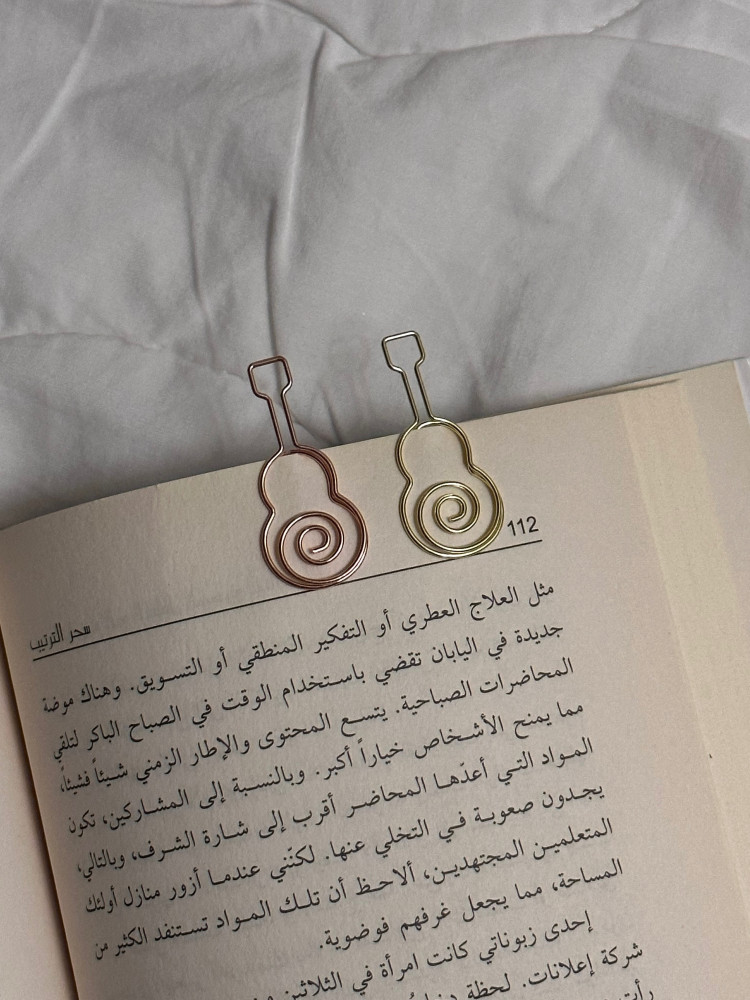 112
سحر الترتيب
مثل العلاج العطري أو التفكير المنطقي أو التسويق. وهناك موضة
جديدة في اليابان تقضي باستخدام الوقت في الصباح الباكر لتلقي
المحاضرات الصباحية. يتسع المحتوى والإطار الزمني شيئاً فشيئاً،
مما يمنح الأشخاص خياراً أكبر. وبالنسبة إلى المشاركين، تكون
المواد التي أعدّها المحاضر أقرب إلى شارة الشرف، وبالتالي،
يجدون صعوبة في التخلي عنها. لكنّني عندما أزور منازل أولئك
المتعلمين المجتهدين، ألاحظ أن تلك المواد تستنفد الكثير من
المساحة، مما يجعل غرفهم فوضوية.
إحدى زبوناتي كانت امرأة في الثلاثين
شركة إعلانات. لحظة